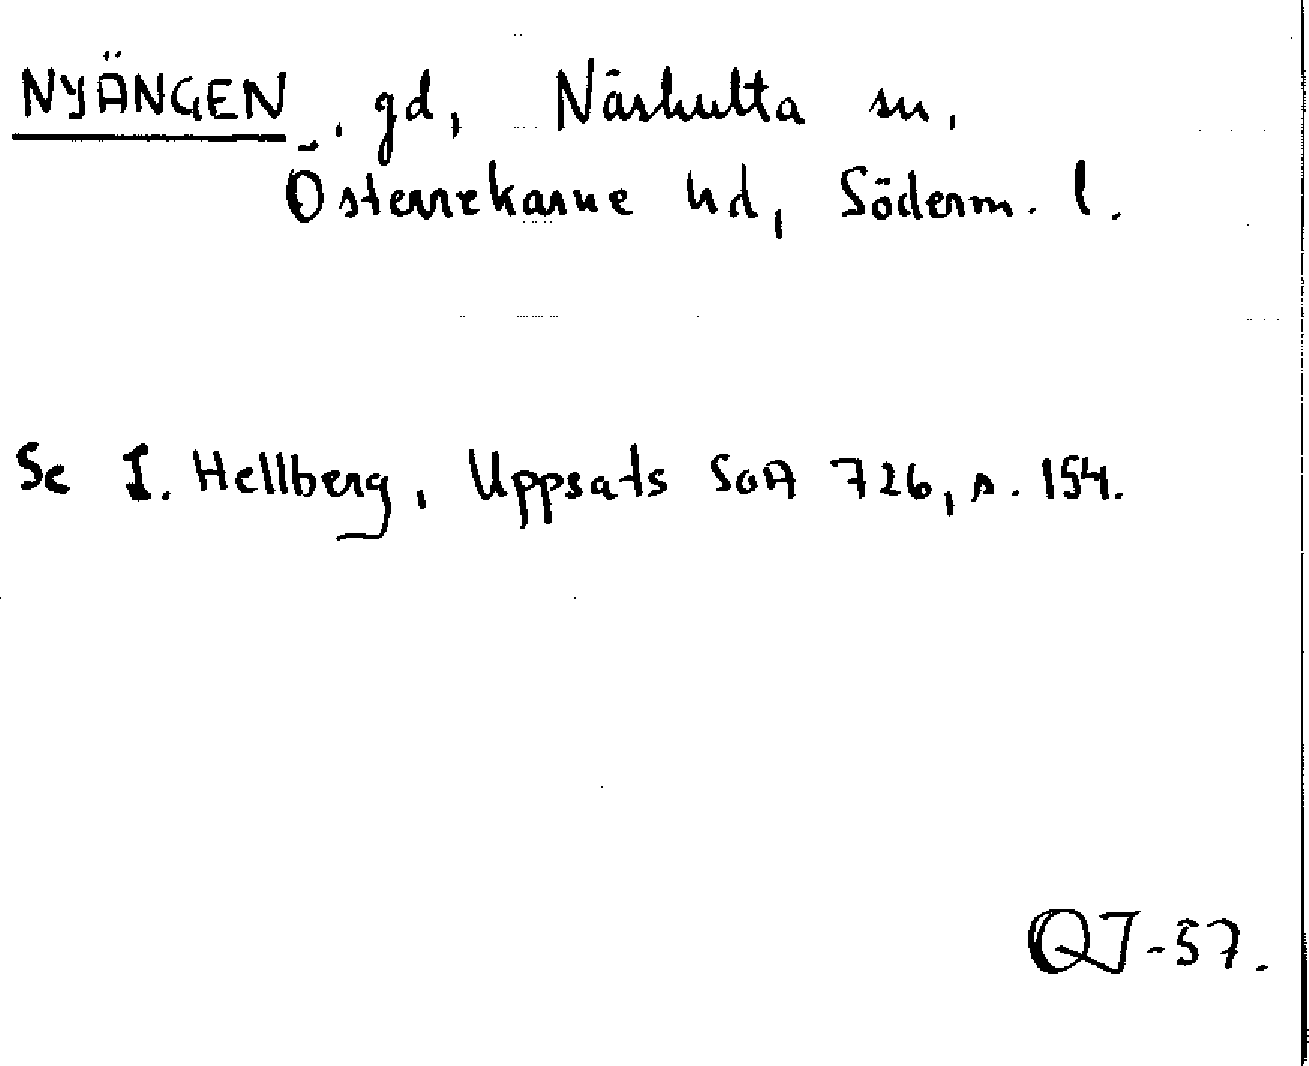 NYÄNGEN, gd, Näshulta sn,
Österrekarne hd, Söderm. l.
Se I. Hellberg, Uppsats SOA 726, s. 154.
QJ-57.